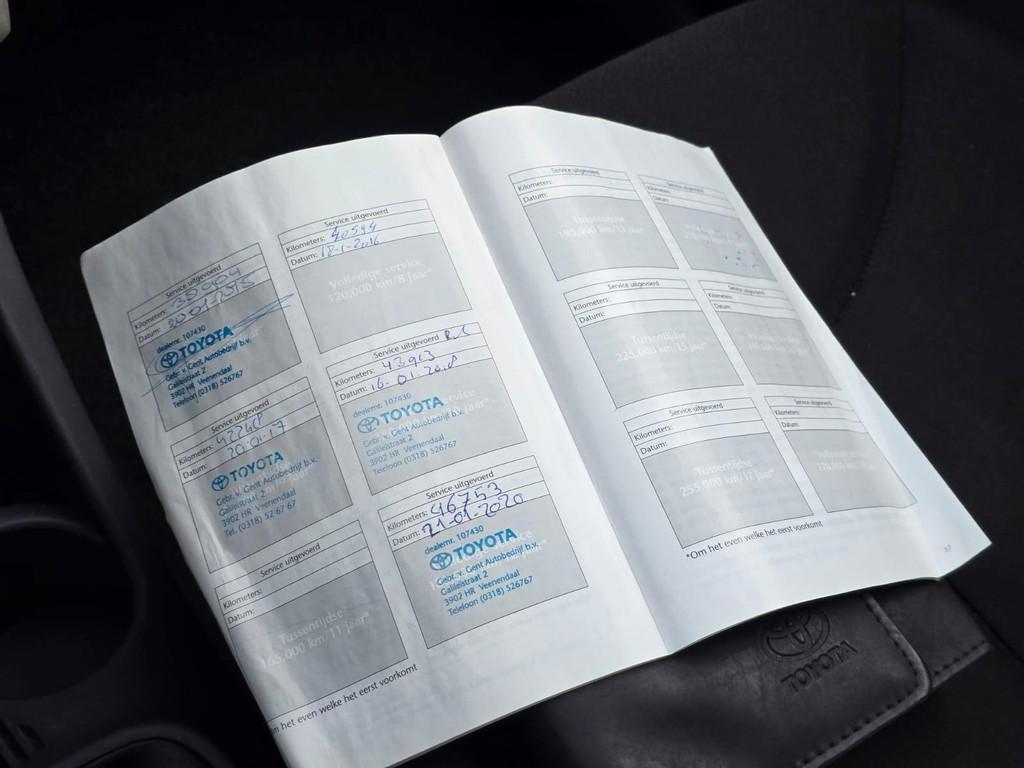 Service uitgevoerd
Kilometers:
Datum: 20-01-2015
dealernr. 107430
TOYOTA
Gebr. v. Gent Autobedrijf b.v.
Galileistraat 2
3902 HR Veenendaal
Telefoon (0318) 526767
Service uitgevoerd
Kilometers: 40544
Datum: 18-1-2016
Volledige service
120,000 km/8 jaar*
Service uitgevoerd
Kilometers:
Datum: 20-01-17
TOYOTA
Gebr. v. Gent Autobedrijf b.v.
Galileistraat 2
3902 HR Veenendaal
Tel. (0318) 52 67 67
Service uitgevoerd
Kilometers: 43913
Datum: 16-01-2018
dealernr. 107430
TOYOTA
Gebr. v. Gent Autobedrijf b.v.
Galileistraat 2
3902 HR Veenendaal
Telefoon (0318) 526767
Service uitgevoerd
Kilometers:
Datum:
Tussentijdse
165,000 km/11 jaar*
Service uitgevoerd
Kilometers: 46753
Datum: 21-01-2020
dealernr. 107430
TOYOTA
Gebr. v. Gent Autobedrijf b.v.
Galileistraat 2
3902 HR Veenendaal
Telefoon (0318) 526767
het even welke het eerst voorkomt
Service uitgevoerd
Kilometers:
Datum:
Tussentijdse
195,000 km/13 jaar*
Service uitgevoerd
Kilometers:
Datum:
Service uitgevoerd
Kilometers:
Datum:
Tussentijdse
225,000 km/15 jaar*
Service uitgevoerd
Kilometers:
Datum:
Service uitgevoerd
Kilometers:
Datum:
Tussentijdse
255,000 km/17 jaar*
Service uitgevoerd
Kilometers:
Datum:
*Om het even welke het eerst voorkomt
37
TOYOTA